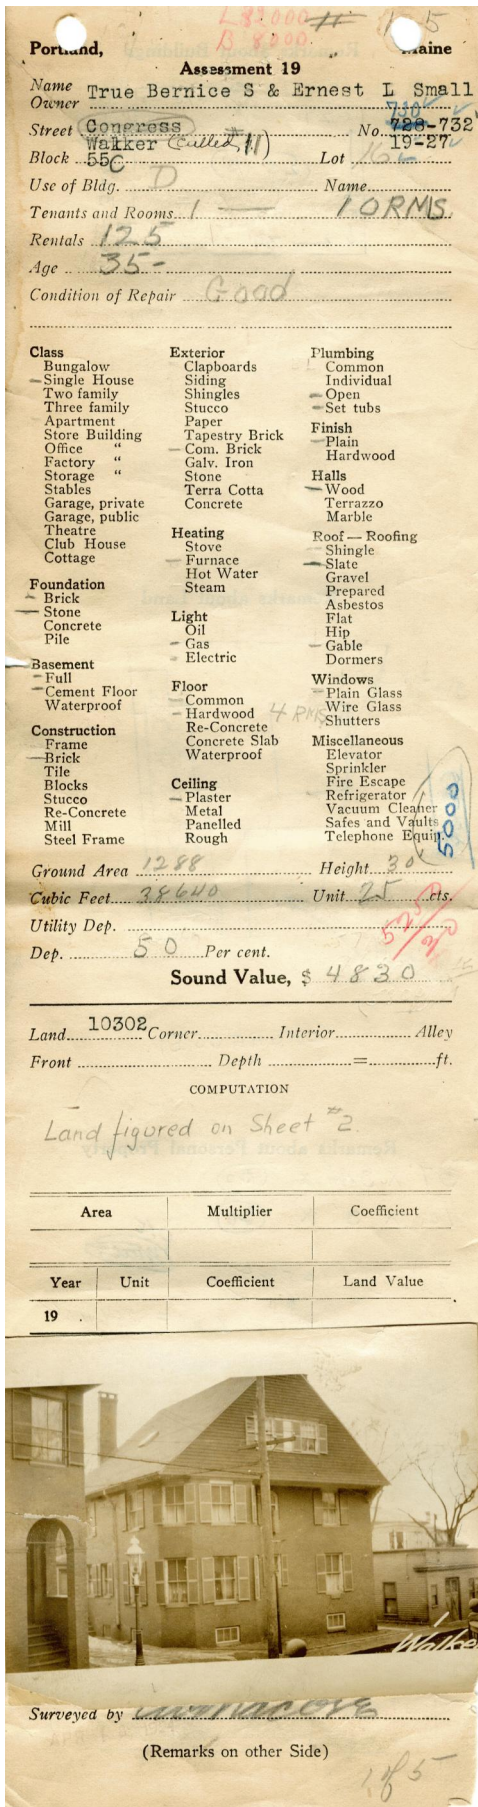 L 83000
B 8000
Portland, Maine
Assessment 19
Name
Owner True Bernice S & Ernest L Small
730
Street Congress No. 728-732
Walker (called #11) 19-27
Block 55C Lot 16
Use of Bldg. D Name
Tenants and Rooms 1 10RMS
Rentals 125
Age 35-
Condition of Repair Good
Class
Bungalow
Single House
Two family
Three family
Apartment
Store Building
Office "
Factory "
Storage "
Stables
Garage, private
Garage, public
Theatre
Club House
Cottage
Foundation
Brick
Stone
Concrete
Pile
Basement
Full
Cement Floor
Waterproof
Construction
Frame
Brick
Tile
Blocks
Stucco
Re-Concrete
Mill
Steel Frame
Exterior
Clapboards
Siding
Shingles
Stucco
Paper
Tapestry Brick
Com. Brick
Galv. Iron
Stone
Terra Cotta
Concrete
Heating
Stove
Furnace
Hot Water
Steam
Light
Oil
Gas
Electric
Floor
Common
Hardwood 4 RMS
Re-Concrete
Concrete Slab
Waterproof
Ceiling
Plaster
Metal
Panelled
Rough
Plumbing
Common
Individual
Open
Set tubs
Finish
Plain
Hardwood
Halls
Wood
Terrazzo
Marble
Roof — Roofing
Shingle
Slate
Gravel
Prepared
Asbestos
Flat
Hip
Gable
Dormers
Windows
Plain Glass
Wire Glass
Shutters
Miscellaneous
Elevator
Sprinkler
Fire Escape
Refrigerator
Vacuum Cleaner
Safes and Vaults
Telephone Equip.
5000
Ground Area 1288 Height 30
Cubic Feet 38640 Unit 25 cts.
Utility Dep.
Dep. 50 Per cent.
Sound Value, $ 4830
Land 10302 Corner Interior Alley
Front Depth = ft.
COMPUTATION
Land figured on Sheet #2.
Area Multiplier Coefficient
Year Unit Coefficient Land Value
19 .
1
Surveyed by
(Remarks on other Side)
1 of 5